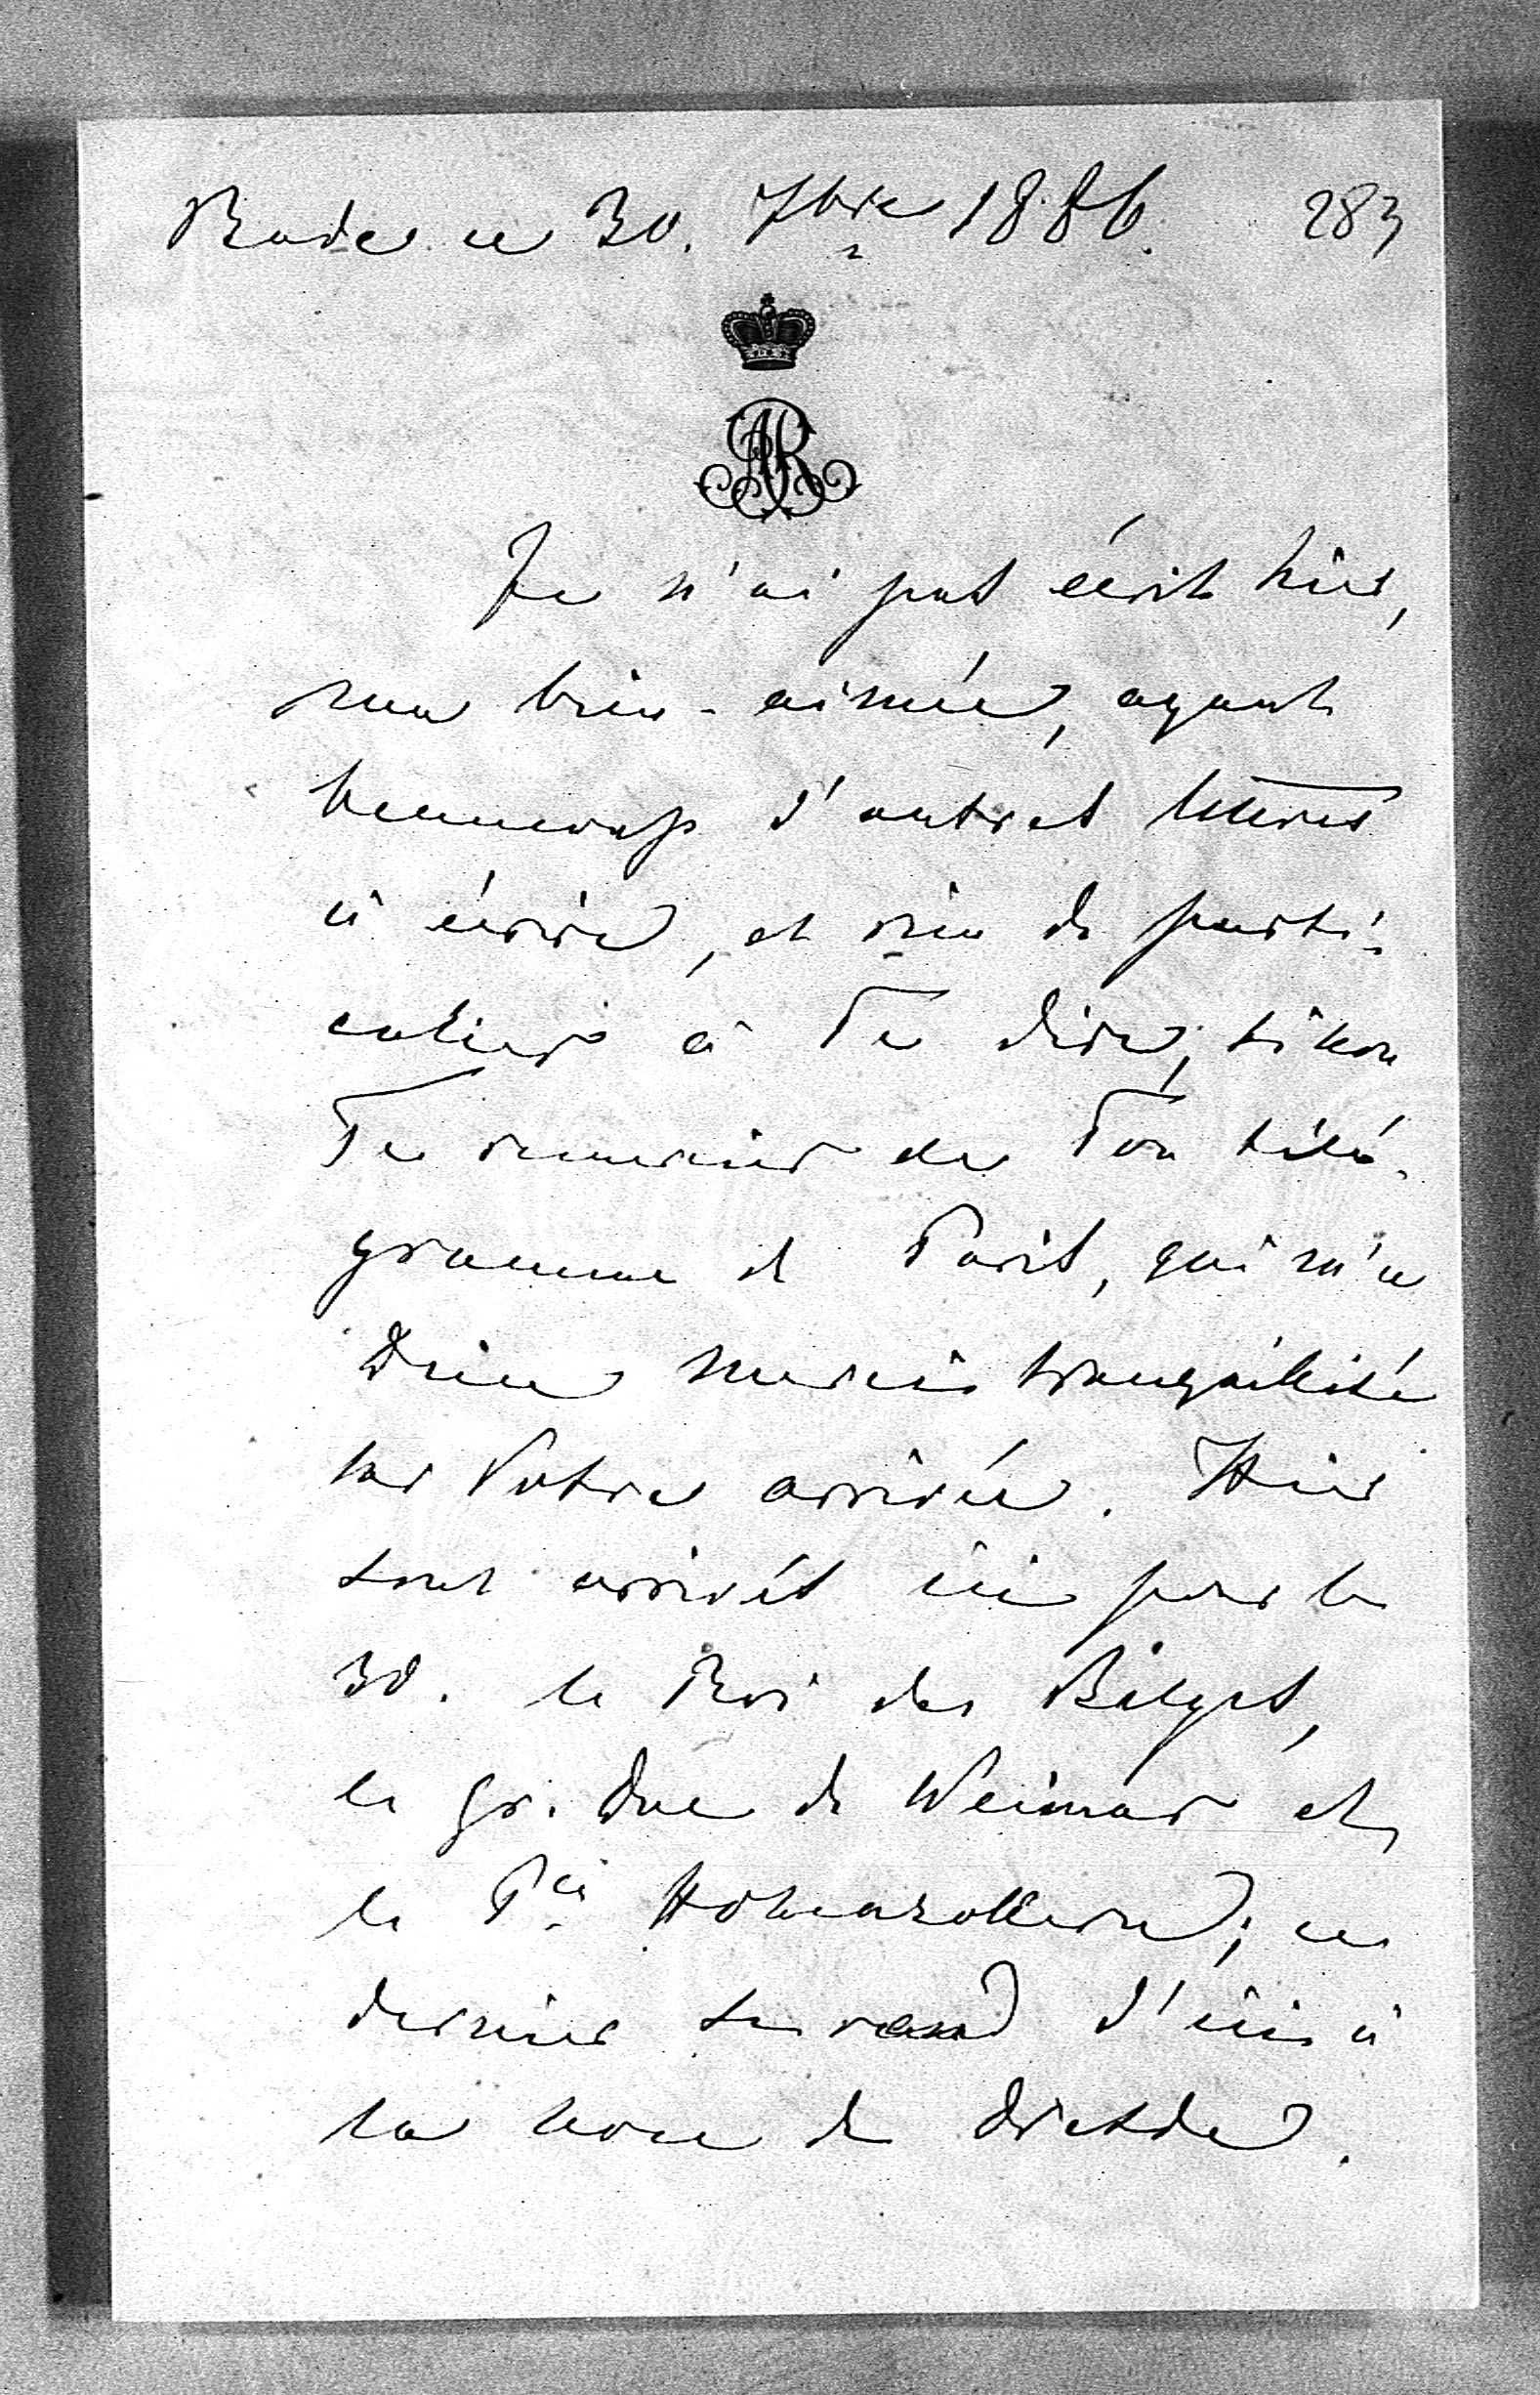 Bade ce 30. 7bre 1886. 283
AR
Je n'ai pas écrit hier,
ma bien-aimée, ayant
beaucoup d'autres lettres
à écrire, et rien de parti-
culier à Te dire, sinon
Te remercier de Ton télé-
gramme de Paris, qui m'a
Dieu merci tranquillisé
sur Votre arrivée. Hier
sont arrivés ici pour le
30. le Roi des Belges,
le gr. Duc de Weimar et
le Pce Hohenzollern; ce
dernier se rend d'ici à
la noce de Dresde.